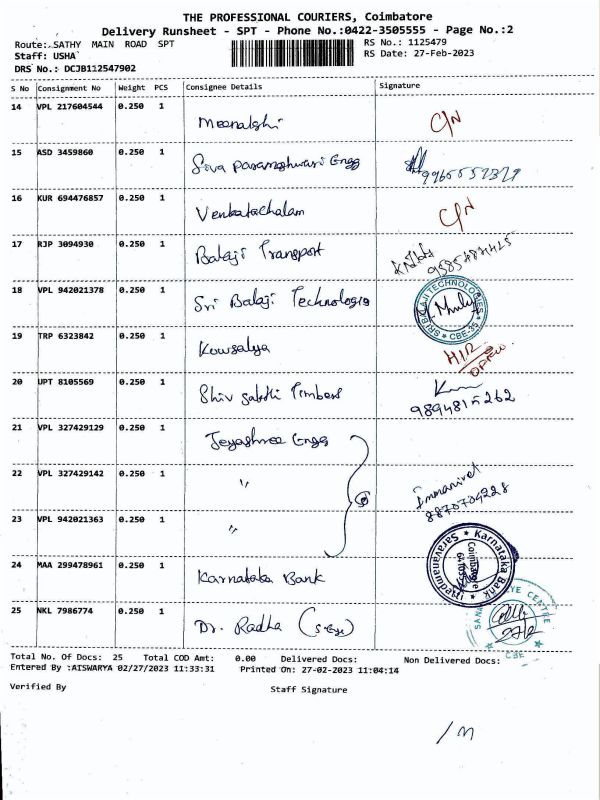 THE PROFESSIONAL COURIERS, Coimbatore
Delivery Runsheet - SPT - Phone No.:0422-3505555 - Page No.:2
Route: SATHY MAIN ROAD SPT
RS No.: 1125479
Staff: USHA
RS Date: 27-Feb-2023
DRS No.: DCJB112547902
S No Consignment No Weight PCS Consignee Details Signature
14 VPL 217604544 0.250 1 Meenakshi C/N
15 ASD 3459860 0.250 1 Siva Parameshwari Engg
16 KUR 694476857 0.250 1 Venkatachalam C/N
17 RJP 3094930 0.250 1 Balaji Transport
18 VPL 942021378 0.250 1 Sri Balaji Technologis
SRI BALAJI TECHNOLOGIES CBE-35
19 TRP 6323842 0.250 1 Kowsalya
20 UPT 8105569 0.250 1 Shiv Sakthi Timbers
9894815262
21 VPL 327429129 0.250 1 Jeyashree Engg
22 VPL 327429142 0.250 1 〃
8870704228
23 VPL 942021363 0.250 1 〃
24 MAA 299478961 0.250 1 Karnataka Bank
Karnataka Bank Coimbatore
25 NKL 7986774 0.250 1 Dr. Radha (S. Eye)
EYE CENTRE CBE
Total No. Of Docs: 25 Total COD Amt: 0.00 Delivered Docs: Non Delivered Docs:
Entered By :AISWARYA 02/27/2023 11:33:31 Printed On: 27-02-2023 11:04:14
Verified By Staff Signature